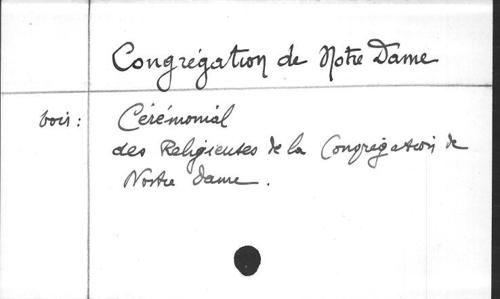 Congrégation de Notre Dame
voir : Cérémonial
des Religieuses de la Congrégation de
Nostre Dame.